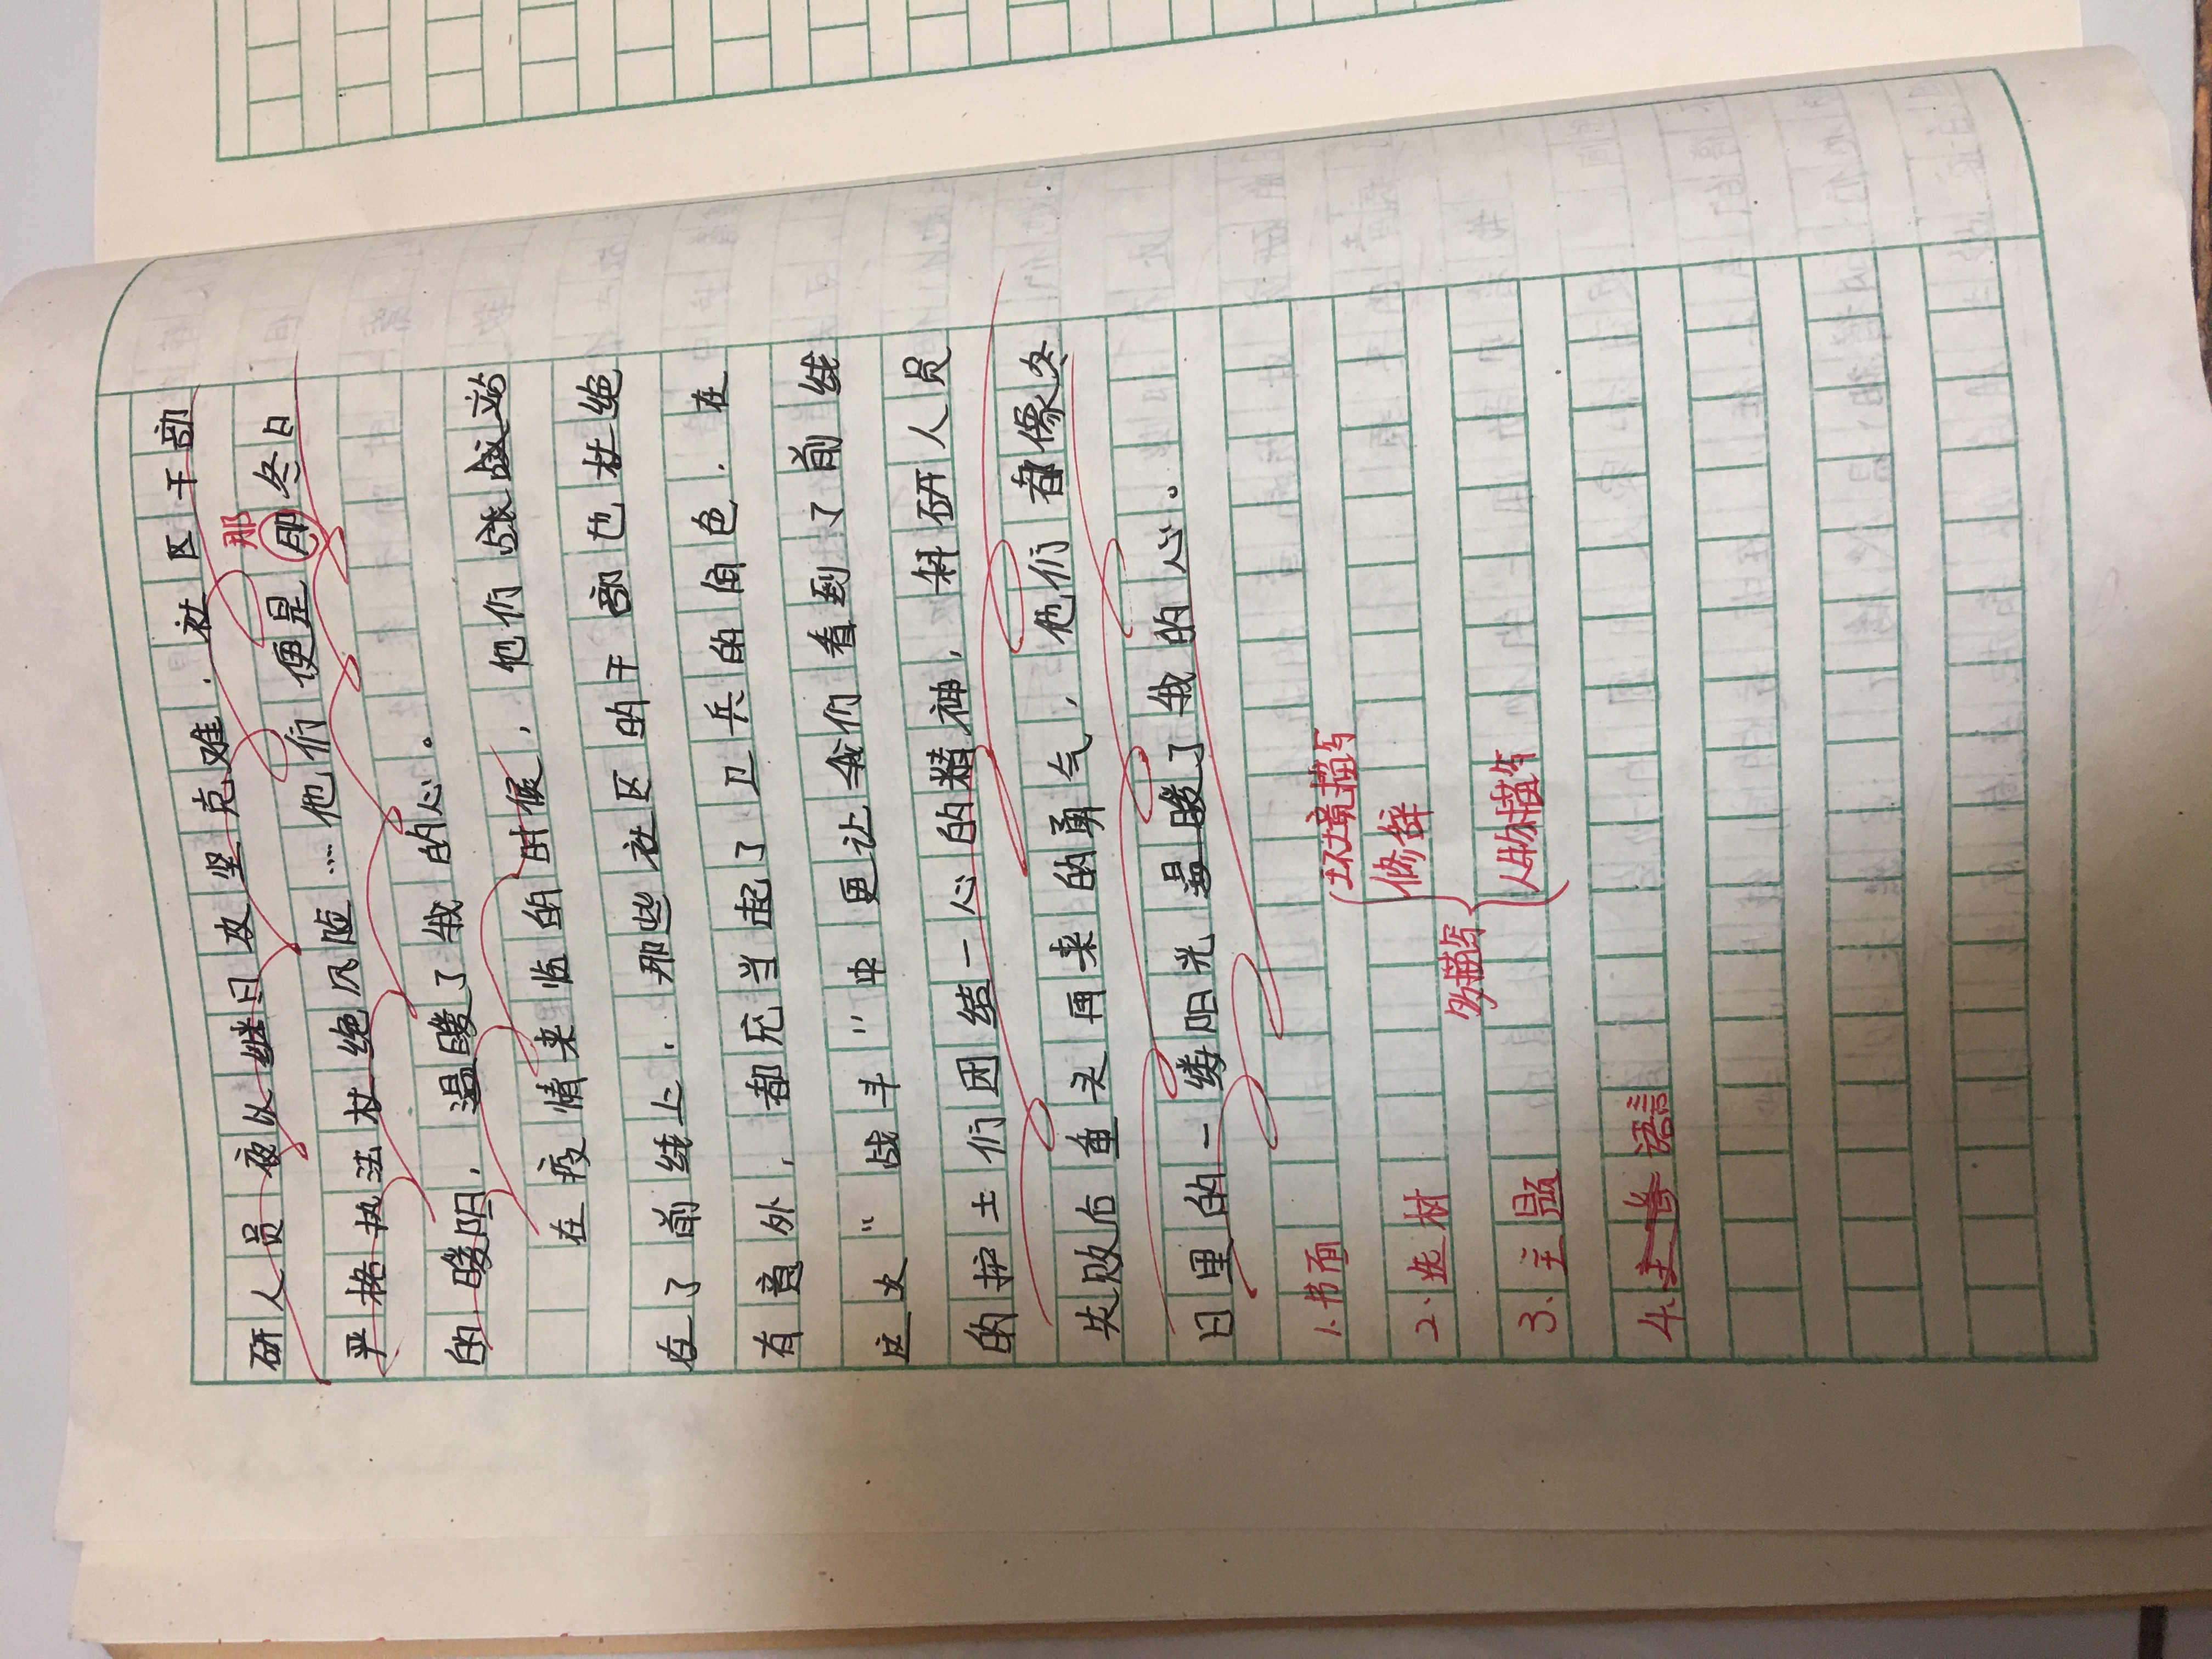 研人员夜以继日攻坚克难，社区干部
那
严格执法杜绝风险…他们便是那冬日
的暖阳，温暖了我的心。
在疫情来临的时候，他们站
在了前线上．那些社区的干部也杜绝
有意外，都充当起了卫兵的角色．在
这次“战斗”中更让我们看到了前线
的护士们团结一心的精神，科研人员
失败后重头再来的勇气，他们都像冬
日里的一缕阳光温暖了我的心。
1.书面
环境描写
2、选材
修辞
多描写
3、主题
人物描写
4、语言